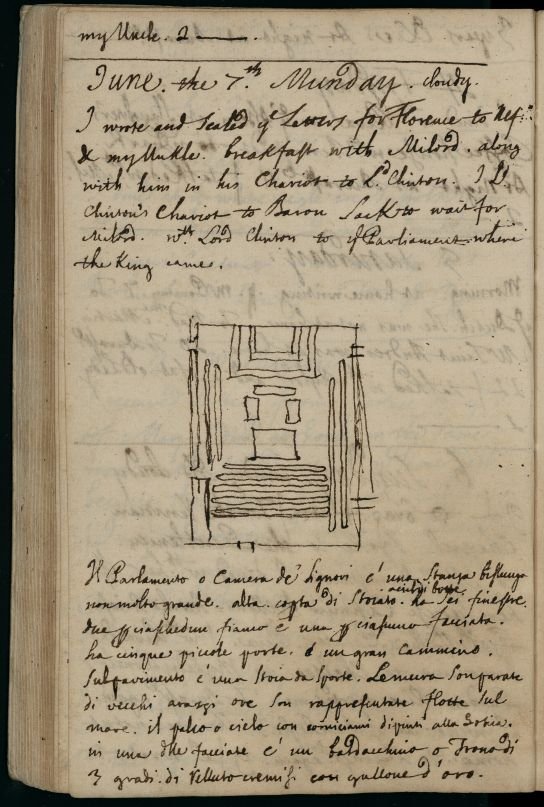 my Uncle. 2 ——.
June. the 7.th Munday. cloudy.
I wrote and Sealed ye Letters for Florence to
& my Unkle. breakfast with Milord. along
with him in his Chariot to Ld Clinton. I Ld
Clinton's Chariot to Baron Sack to wait for
Milord. wth Lord Clinton to ye Parliament where
the King came.
Il Parlamento o Camera de' Signori é una Stanza bislunga
non molto grande. alta. coptª di Stoiato. ha Sei finestre.
due p ciaschedun fianco é una p ciascuno facciata.
ha cinque piccole porte. é un gran Cammino.
Sul pavimento é una Stoia da Sporte. Le mura Son parate
di vecchi arazzi ove Son rappresentate flotte Sul
mare. il palco o cielo con cornicioni dipinti alla Gotica.
in una dlle facciate é un baldacchino o Trono di
3 gradi. di Velluto cremisi con gallone d'oro.